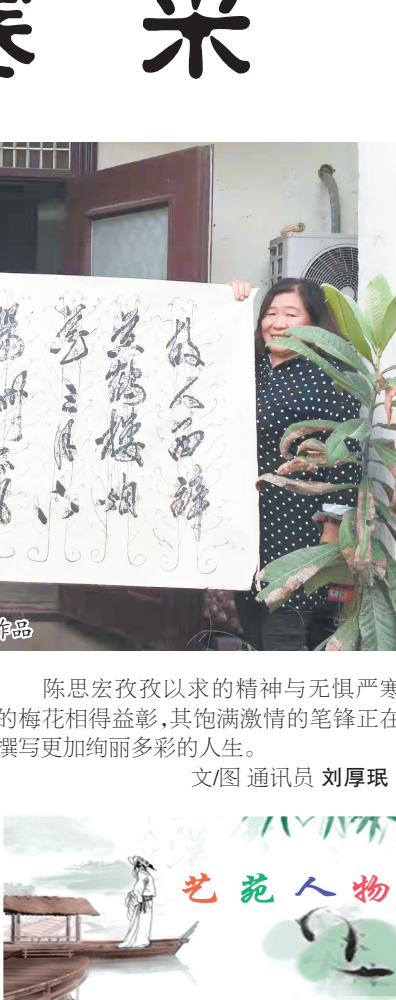 采
故人西辞
黄鹤楼烟
花三月下
扬州
作品
陈思宏孜孜以求的精神与无惧严寒
的梅花相得益彰,其饱满激情的笔锋正在
撰写更加绚丽多彩的人生。
文/图 通讯员 刘厚珉
艺苑人物